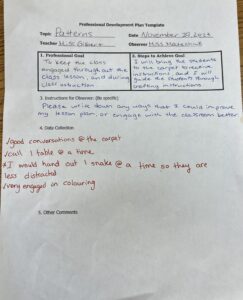 Professional Development Plan Template
Topic Patterns Date November 29, 2021
Teacher Miss Gilbert Observer Miss
1. Professional Goal
To keep the class
engaged throughout the
class lesson, and during
class
2. Steps to Achieve Goal
I will bring the students
to the carpet to receive
instructions, and I will
guide the students through
crafting instructions
3. Instructions for Observer: (Be specific)
Please write down any ways that I could improve
my lesson plan or engage with the classroom better
4. Data Collection
✓good conversations @ the carpet
✓call 1 table @ a time
*I would hand out 1 snake @ a time so they are
less distracted
✓very engaged in colouring
5. Other Comments